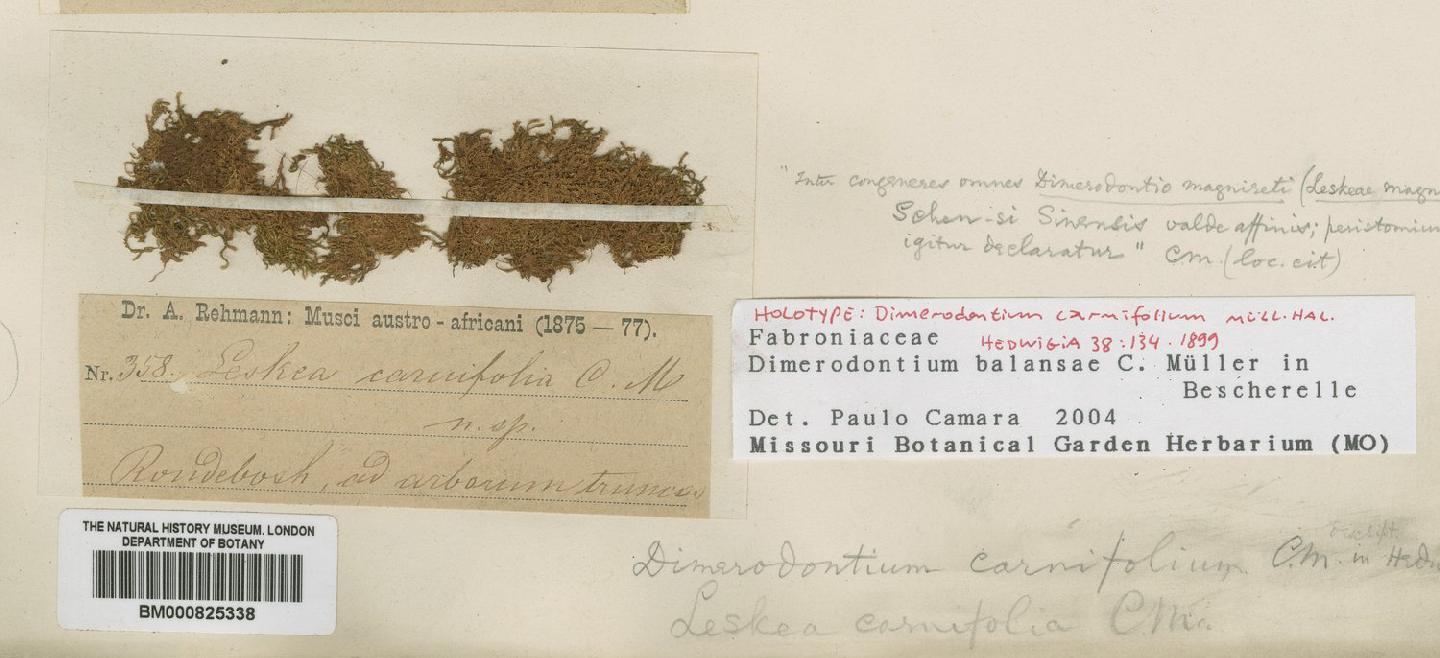 Dr. A. Rehmann: Musci austro-africani (1875 — 77).
Nr. 358. Leskea carnifolia C. M
n. sp.
Rondebosh, ad arborum truncos
THE NATURAL HISTORY MUSEUM. LONDON
DEPARTMENT OF BOTANY
BM000825338
"Inter congeneres omnes Dimerodontio magnireti (Leskeae magn
Schen-si Sinensis valde affinis; peristomium
igitur declaratur" C.M. (loc. cit)
HOLOTYPE: Dimerodontium carnifolium MÜLL. HAL.
Fabroniaceae HEDWIGIA 38:134. 1899
Dimerodontium balansae C. Müller in
Bescherelle
Det. Paulo Camara 2004
Missouri Botanical Garden Herbarium (MO)
Dimerodontium carnifolium C.M. in Hedw
Leskea carnifolia C.M.